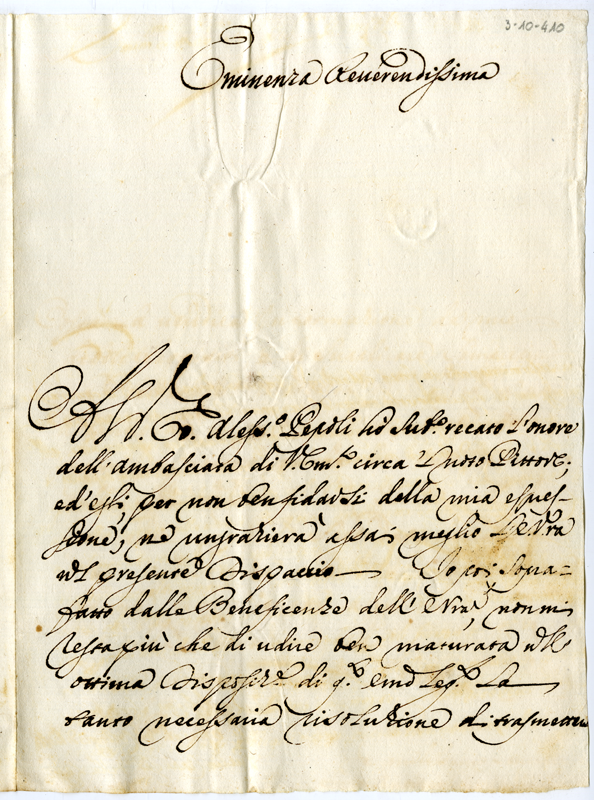 3-10-410
Eminenza Reuerendissima
Al S. Co. Aless.o Pepoli hò sub.o recato l'onore
dell'ambasciata di V. Em.a circa l'Pittore;
ed'egli, per non ben fidarsi della mia espres-
sione, ne ringrazierà assai meglio l'E. Vra
nel presente Dispaccio — Io poi soura-
fatto dalle Beneficenze dell'E. Vra, non mi
resta più che di udire ben maturata nell'
ottima di q.o Emo Leg.o La
tanto necessaria risoluzione di trasmetter